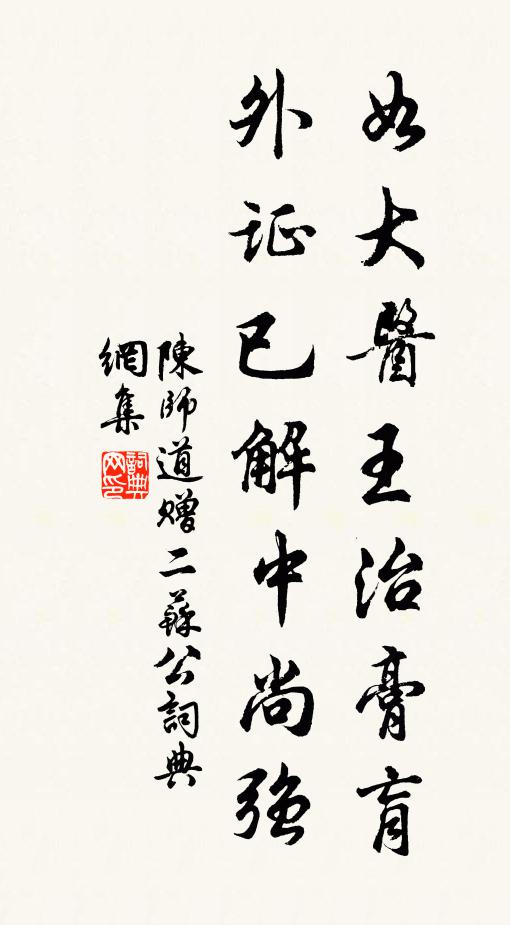 如大醫王治膏肓
外证已解中尚強
陳師道赠二蘇公詞典
網集
詞典网印